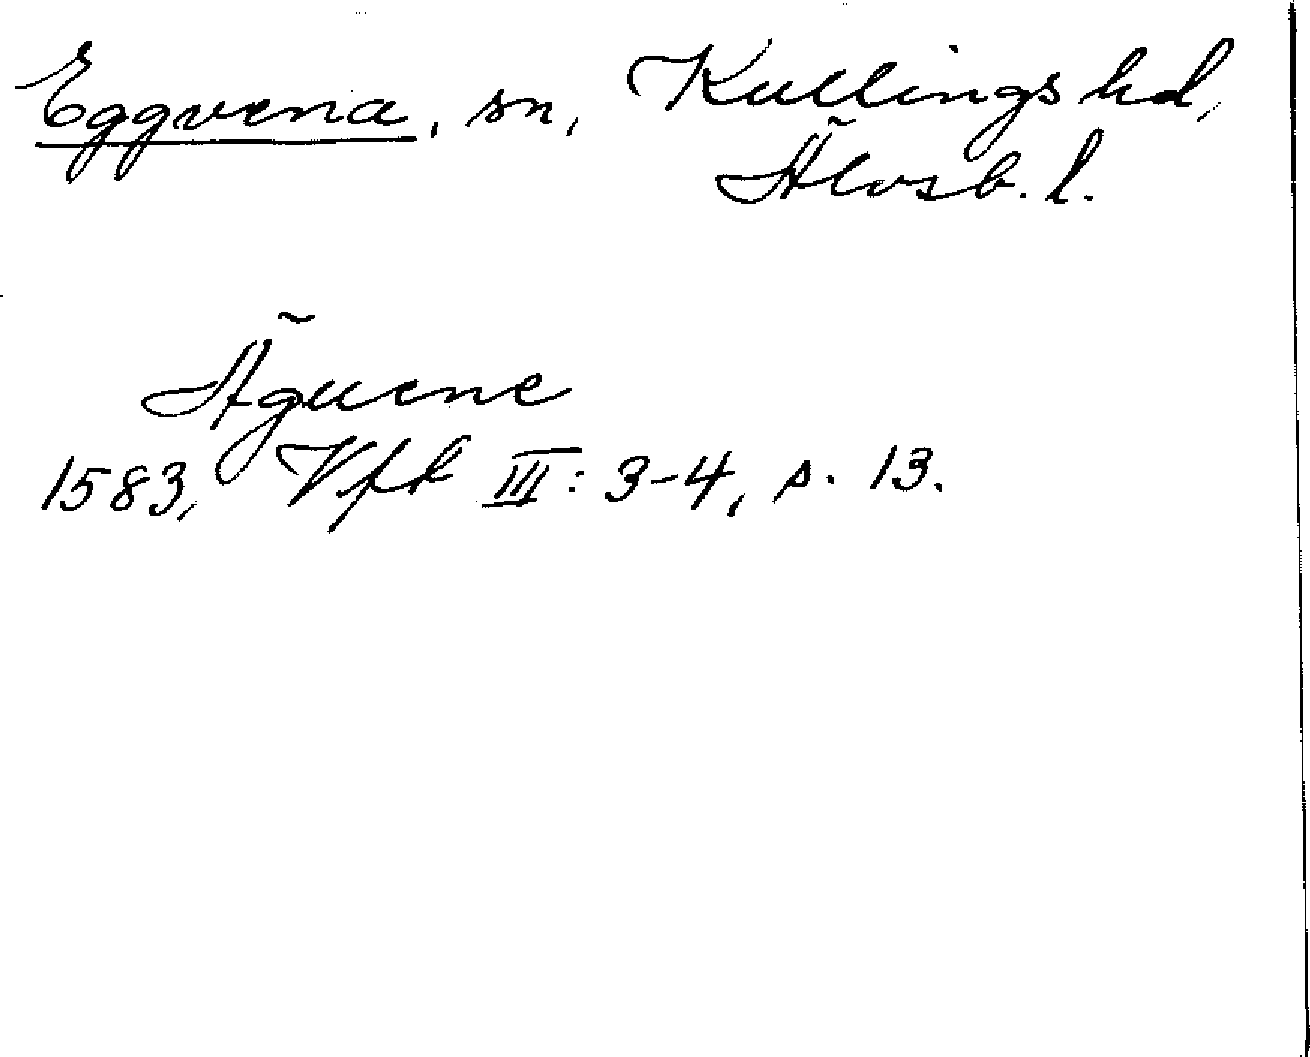 Eggvena, sn, Kullings hd,
Älvsb. l.
Äguene
1583, Vfk III: 3-4, s. 13.